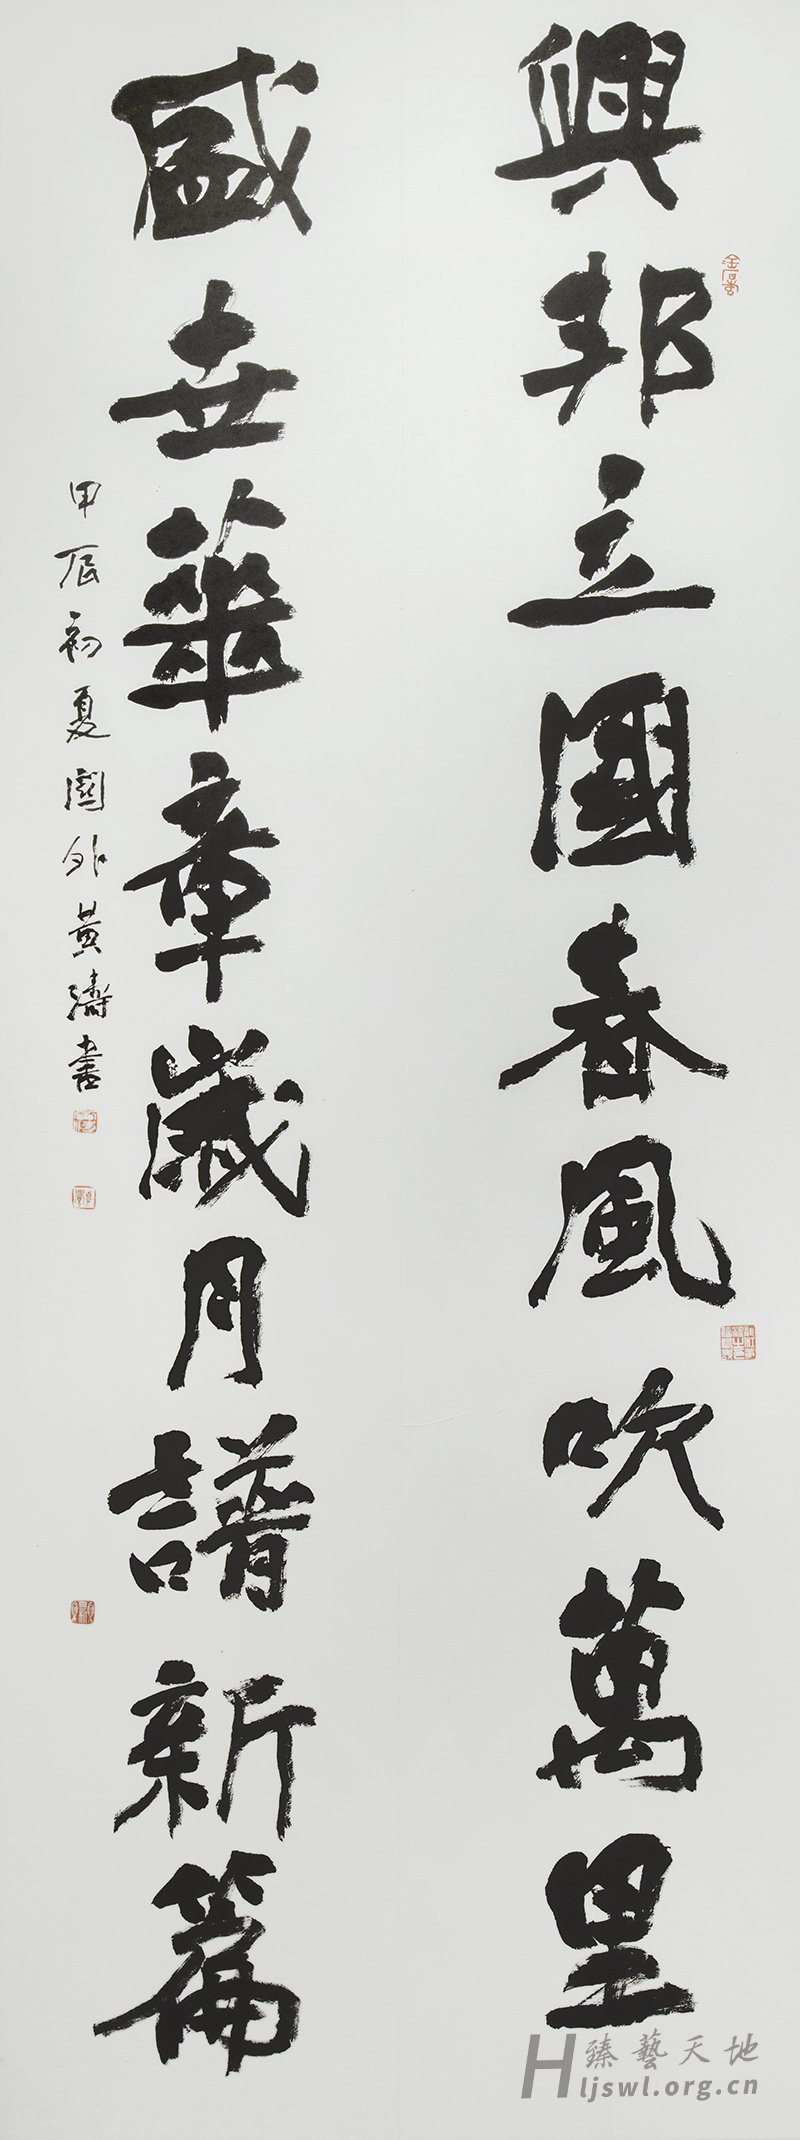 興邦立國春風吹萬里
盛世華章歲月譜新篇
甲辰初夏關外黃濤書
臻藝天地
Hljswl.org.cn